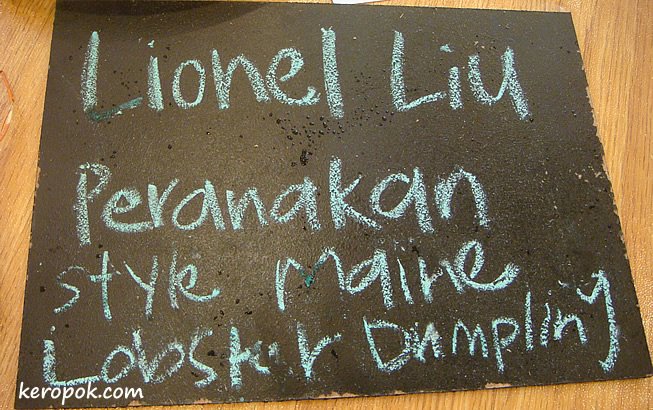 Lionel Liu
Peranakan
style Maine
Lobster Dumpling
keropok.com